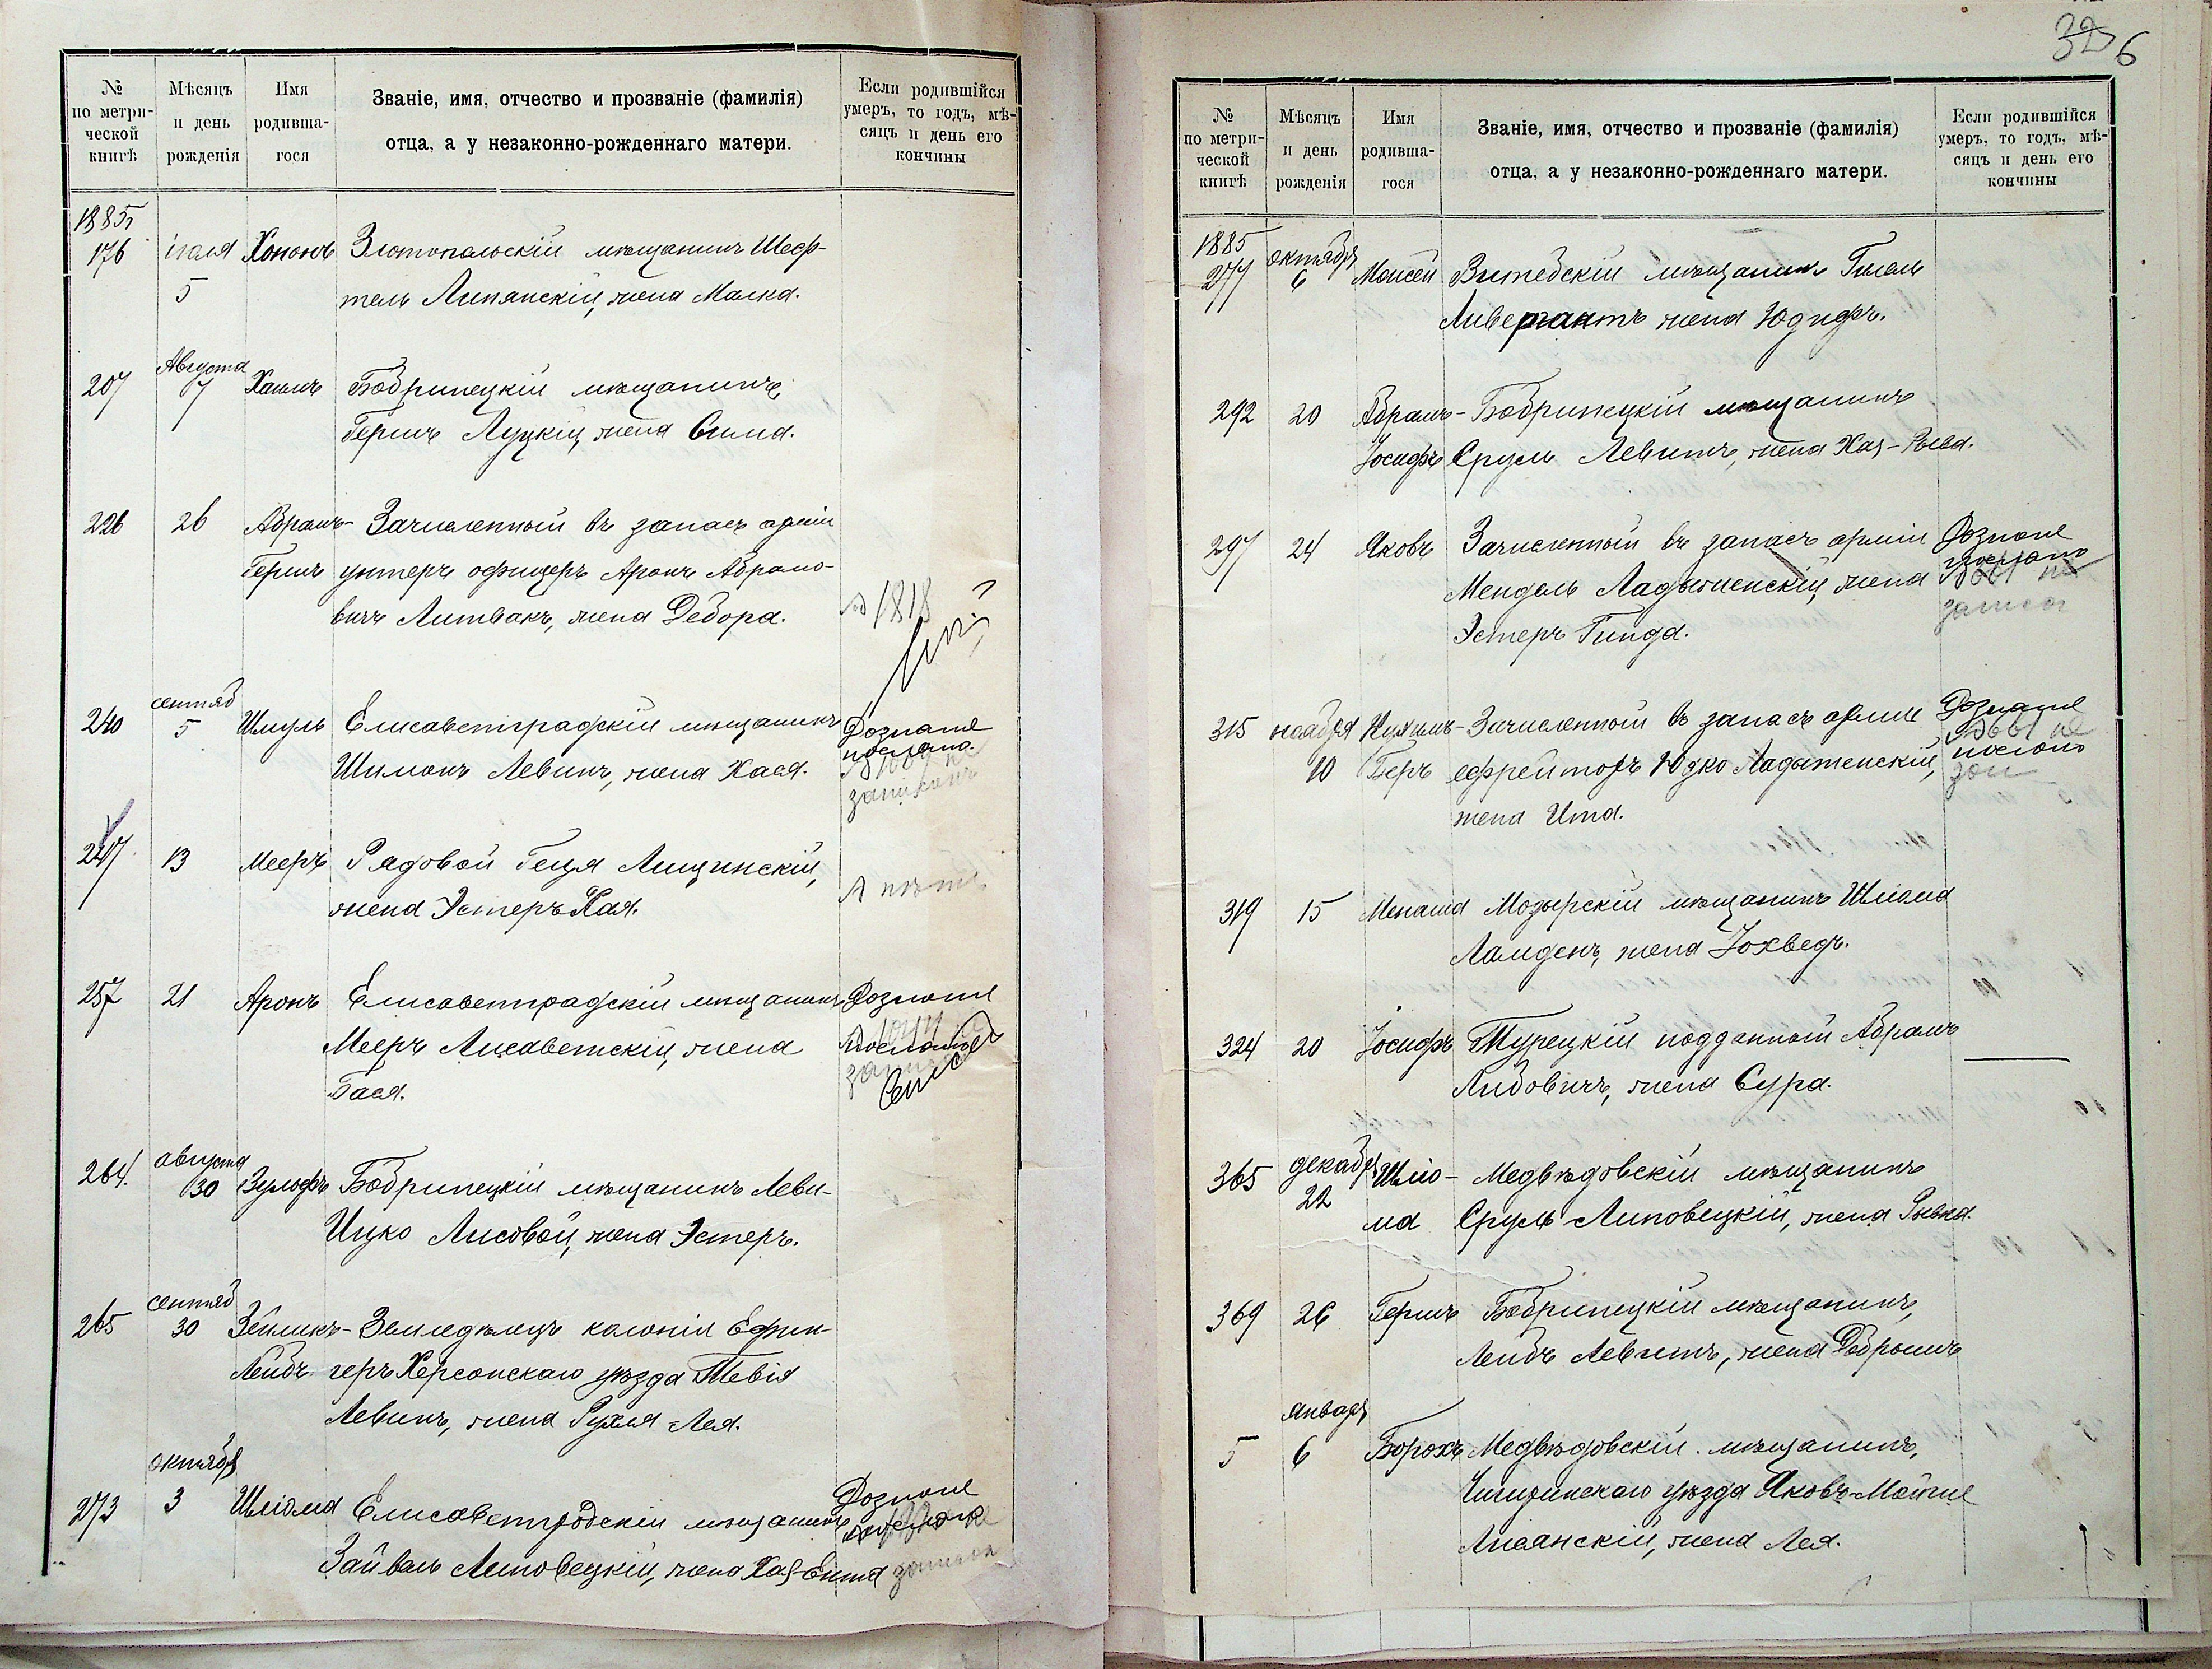 32 6
№ по метри-ческой книгѣ
Мѣсяцъ и день рожденія
Имя родивша-гося
Званіе, имя, отчество и прозваніе (фамилія)
отца, а у незаконно-рожденнаго матери.
Если родившійся умеръ, то годъ, мѣ-сяцъ и день его кончины
1885
176 іюля 5 Хононъ Златопольскій мѣщанинъ Шеф-
тель Липянскій, жена Малка.
207 Августа 7 Хаимъ Бобринецкій мѣщанинъ,
Гершъ Луцкій, жена Сима.
226 26 Абрамъ- Зачисленный въ запасъ арміи
Гершъ унтеръ офицеръ Аронъ Абрамо-
вичъ Литвакъ, жена Дебора.
1818
240 сентяб 5 Шмуль Елисаветградскій мѣщанинъ
Шимонъ Левинъ, жена Хася.
Дознаніе
послано.
247 13 Мееръ Рядовой Геця Лищинскій,
жена Эстеръ Хая.
257 21 Аронъ Елисаветградскій мѣщанинъ
Мееръ Лисаветскій, жена
Бася.
Дознаніе
послано
264. августа 30 Зульфъ Бобринецкій мѣщанинъ Леви-
Ицко Лисовой, жена Эстеръ.
265 сентяб 30 Зейликъ- Земледѣлецъ колоніи Ефин-
Лейбъ геръ Херсонскаго уѣзда Тевія
Левинъ, жена Рухля-Лея.
273 октября 3 Шліома Елисаветградскій мѣщанинъ
Зайвель Липовецкій, жена Хая-Ента
Дознаніе
№ по метри-ческой книгѣ
Мѣсяцъ и день рожденія
Имя родивша-гося
Званіе, имя, отчество и прозваніе (фамилія)
отца, а у незаконно-рожденнаго матери.
Если родившійся умеръ, то годъ, мѣ-сяцъ и день его кончины
1885
277 октября 6 Моисей Витебскій мѣщанинъ Гилель
Ливергантъ жена Юдифь.
292 20 Абрамъ- Бобринецкій мѣщанинъ
Іосифъ Сруль Левитъ, жена Хая-Рыва.
297 24 Яковъ Зачисленный въ запасъ арміи
Мендель Ладыженскій, жена
Эстеръ Гинда.
Дознаніе
послано
315 ноября 10 Нухимъ- Зачисленный въ запасъ арміи
Беръ ефрейторъ Юдко Ладыженскій,
жена Ита.
Дознаніе
послано
319 15 Менаша Мозырскій мѣщанинъ Шліома
Ламденъ, жена Іохведъ.
324 20 Іосифъ Турецкій подданный Абрамъ
Либовичъ, жена Сура.
365 декабря 22 Шліо- Медвѣдовскій мѣщанинъ
ма Сруль Липовецкій, жена Рывка.
369 26 Гершъ Бобринецкій мѣщанинъ,
Лейбъ Левитъ, жена Добрышъ
5 январь 6 Борохъ Медвѣдовскій мѣщанинъ,
Чигиринскаго уѣзда Яковъ-Мойше
Лисянскій, жена Лея.